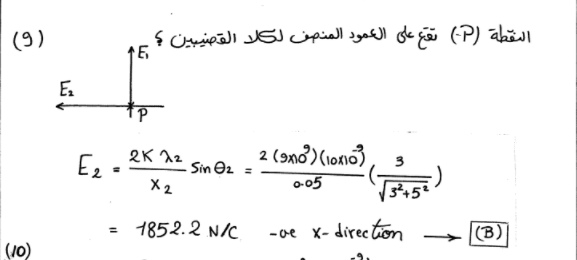 (9) النقطة (P-) تقع على العمود المنصف لكلا القضيبين ؟
E₁
E₂
P
E₂ = 2K λ₂ / x₂ Sin θ₂ = 2 (9x10⁹)(10x10⁻⁹) / 0.05 (3 / √(3²+5²))
= 1852.2 N/C -ve x-direction ⟶ (B)
(10)